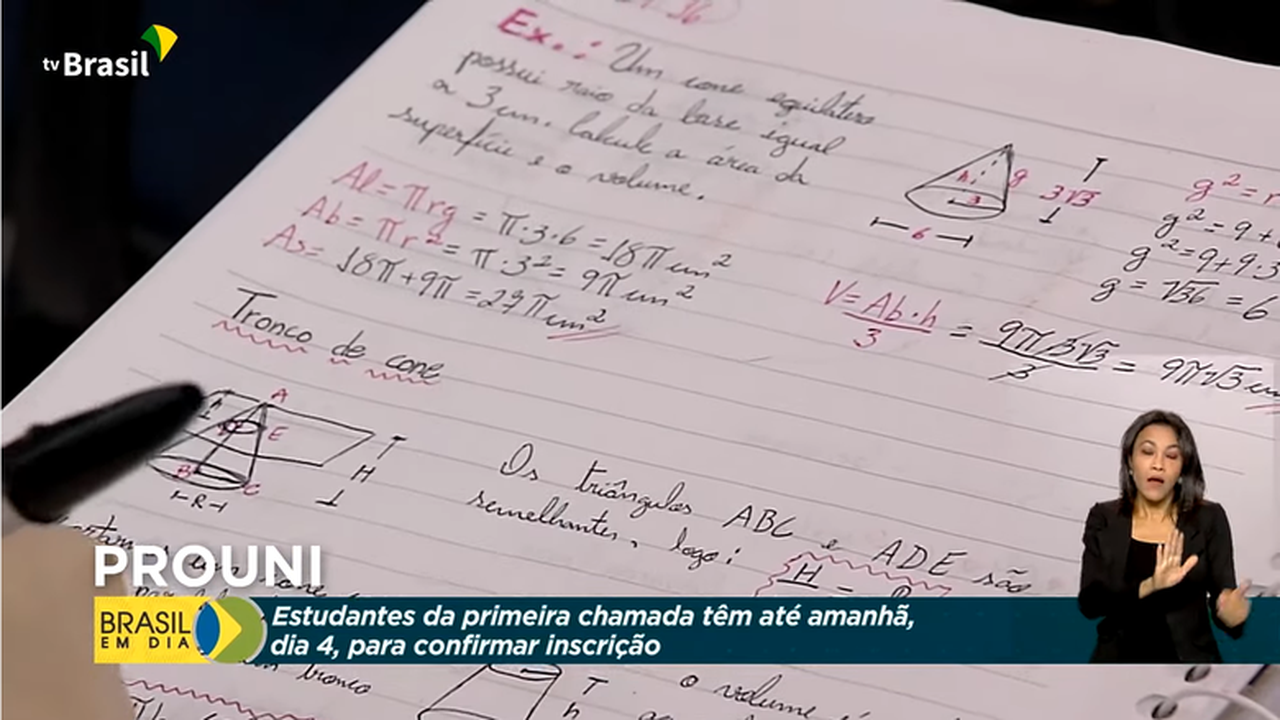 tv Brasil
Ex.: Um cone equilátero
possui raio da base igual
a 3 cm. Calcule a área da
superfície e o volume.
Al = πrg = π·3·6 = 18π cm²
Ab = πr² = π·3² = 9π cm²
As = 18π + 9π = 27π cm²
h g 3√3
3
6
g² = r
g² = 9 +
g² = 9 + 9·3
g = √36 = 6
V = Ab·h / 3 = 9π 3√3 / 3 = 9π√3 cm
Tronco de cone
A
E
B C
H
R
Os triângulos ABC e ADE são
semelhantes, logo:
H
PROUNI
BRASIL
EM DIA
Estudantes da primeira chamada têm até amanhã,
dia 4, para confirmar inscrição
tronco
h
o volume